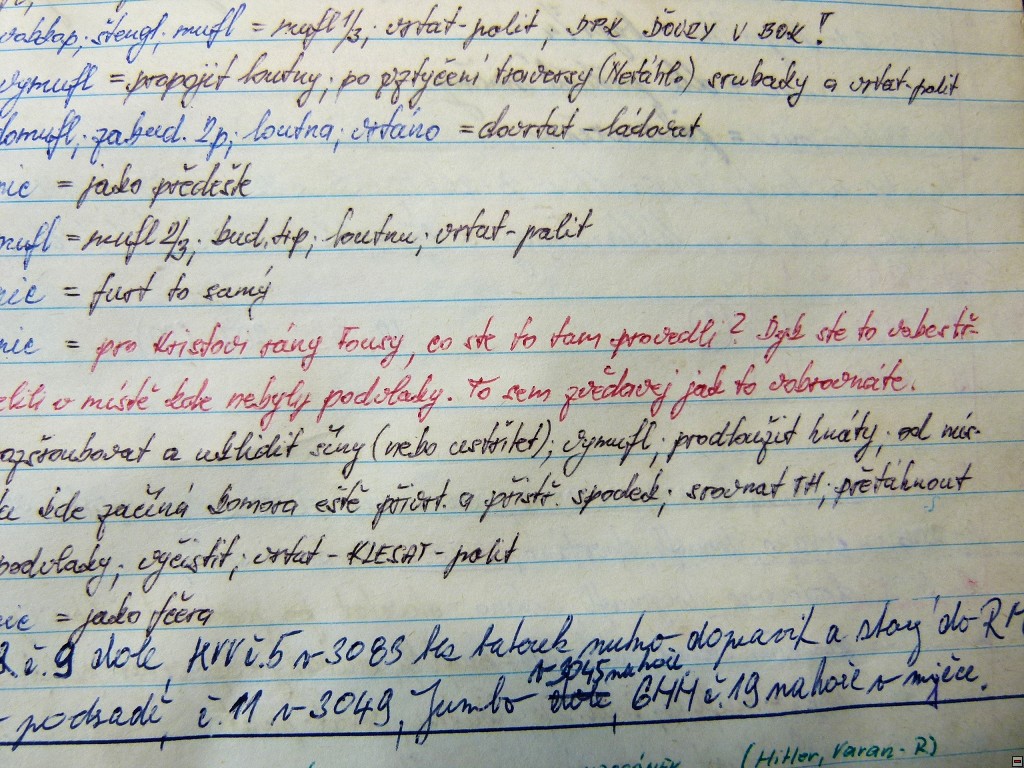 štengl; mufl = mufl 1/3; vrtat-polit; DPK V BOK!
vymufl = propojit loutny; po vztyčení traversy (Netáhlo) srubády a vrtat-polit
domufl; zabud. 2p; loutna; vrtáno = dovrtat - ládovat
nic = jako předešle
mufl = mufl 2/3; bud. ; loutnu; vrtat-palit
nic = furt to samý
nic = pro Kristovi rány Fousy, co ste to tam provedli? Dyk ste to vobestř-
elili v místě kde nebyly podvlaky. To sem zvědavej jak to vobrovnáte.
ozšroubovat a uklidit šíny (nebo ustřílet); vymufl; prodloužit hnáty; od mís-
a kde začíná komora eště přivrt. a přistř. spodek; srovnat TH; přetáhnout
podvlaky; vyčistit; vrtat - KLESAT - palit
nic = jako fčera
č. 9 dole, HVV č. 5 v-3083 bez nutno dopravit a starý do
v-3045 nahoře
podsadě, č. 11 v-3049, Jumbo dole, GHH č. 19 nahoře v myčce.
(Hitler, Varan-R)